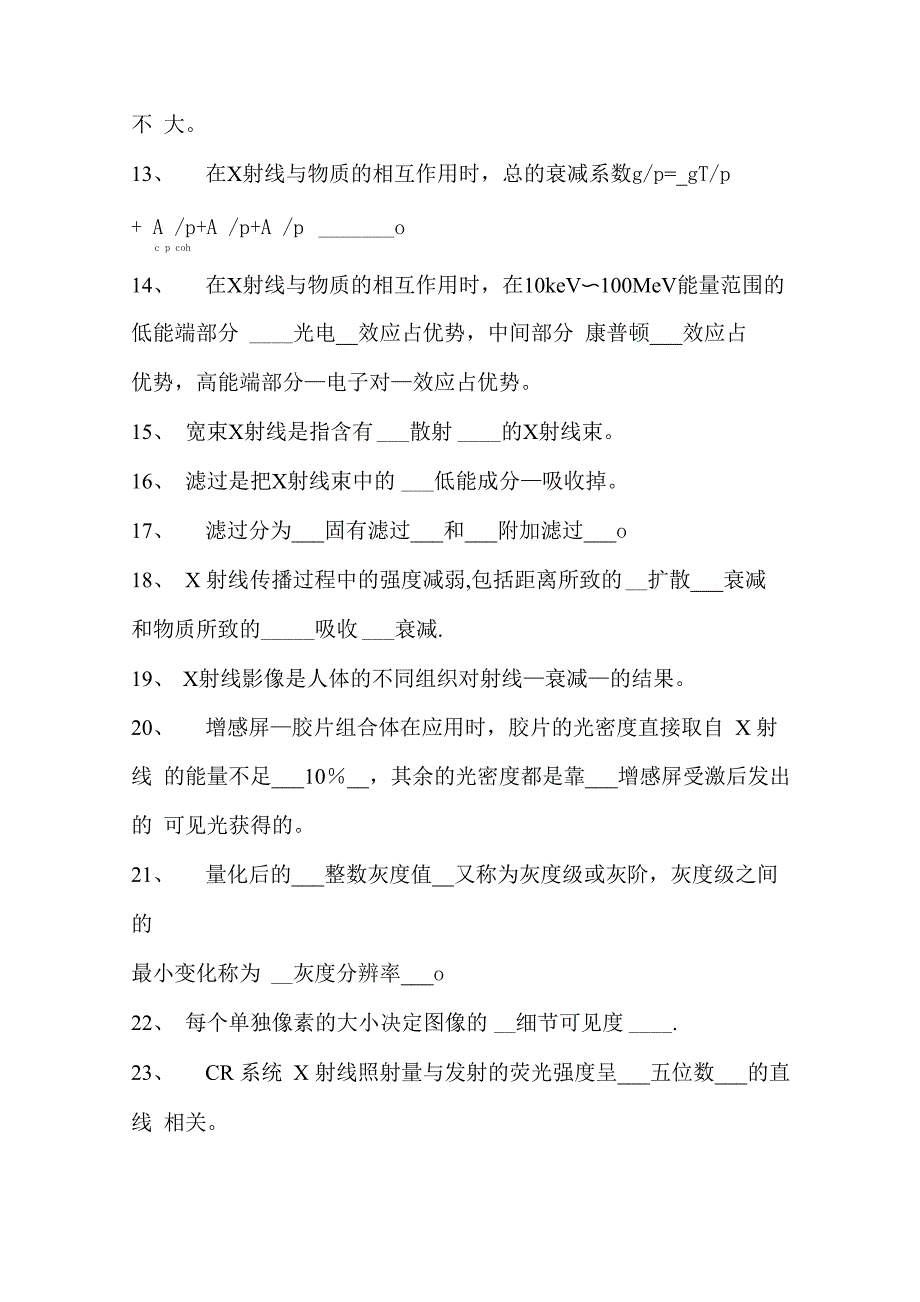 不 大。
13、 在X射线与物质的相互作用时，总的衰减系数g/p=_gT/p
+ A /p+A /p+A /p _______o
c p coh
14、 在X射线与物质的相互作用时，在10keV∽100MeV能量范围的
低能端部分 ____光电__效应占优势，中间部分 康普顿___效应占
优势，高能端部分—电子对—效应占优势。
15、 宽束X射线是指含有 ___散射 ____的X射线束。
16、 滤过是把X射线束中的 ___低能成分—吸收掉。
17、 滤过分为___固有滤过___和___附加滤过___o
18、 X 射线传播过程中的强度减弱,包括距离所致的 __扩散___衰减
和物质所致的_____吸收 ___衰减.
19、 X射线影像是人体的不同组织对射线—衰减—的结果。
20、 增感屏—胶片组合体在应用时，胶片的光密度直接取自 X 射
线 的能量不足___10％__，其余的光密度都是靠___增感屏受激后发出
的 可见光获得的。
21、 量化后的___整数灰度值__又称为灰度级或灰阶，灰度级之间
的
最小变化称为 __灰度分辨率___o
22、 每个单独像素的大小决定图像的 __细节可见度 ____.
23、 CR 系统 X 射线照射量与发射的荧光强度呈___五位数___的直
线 相关。